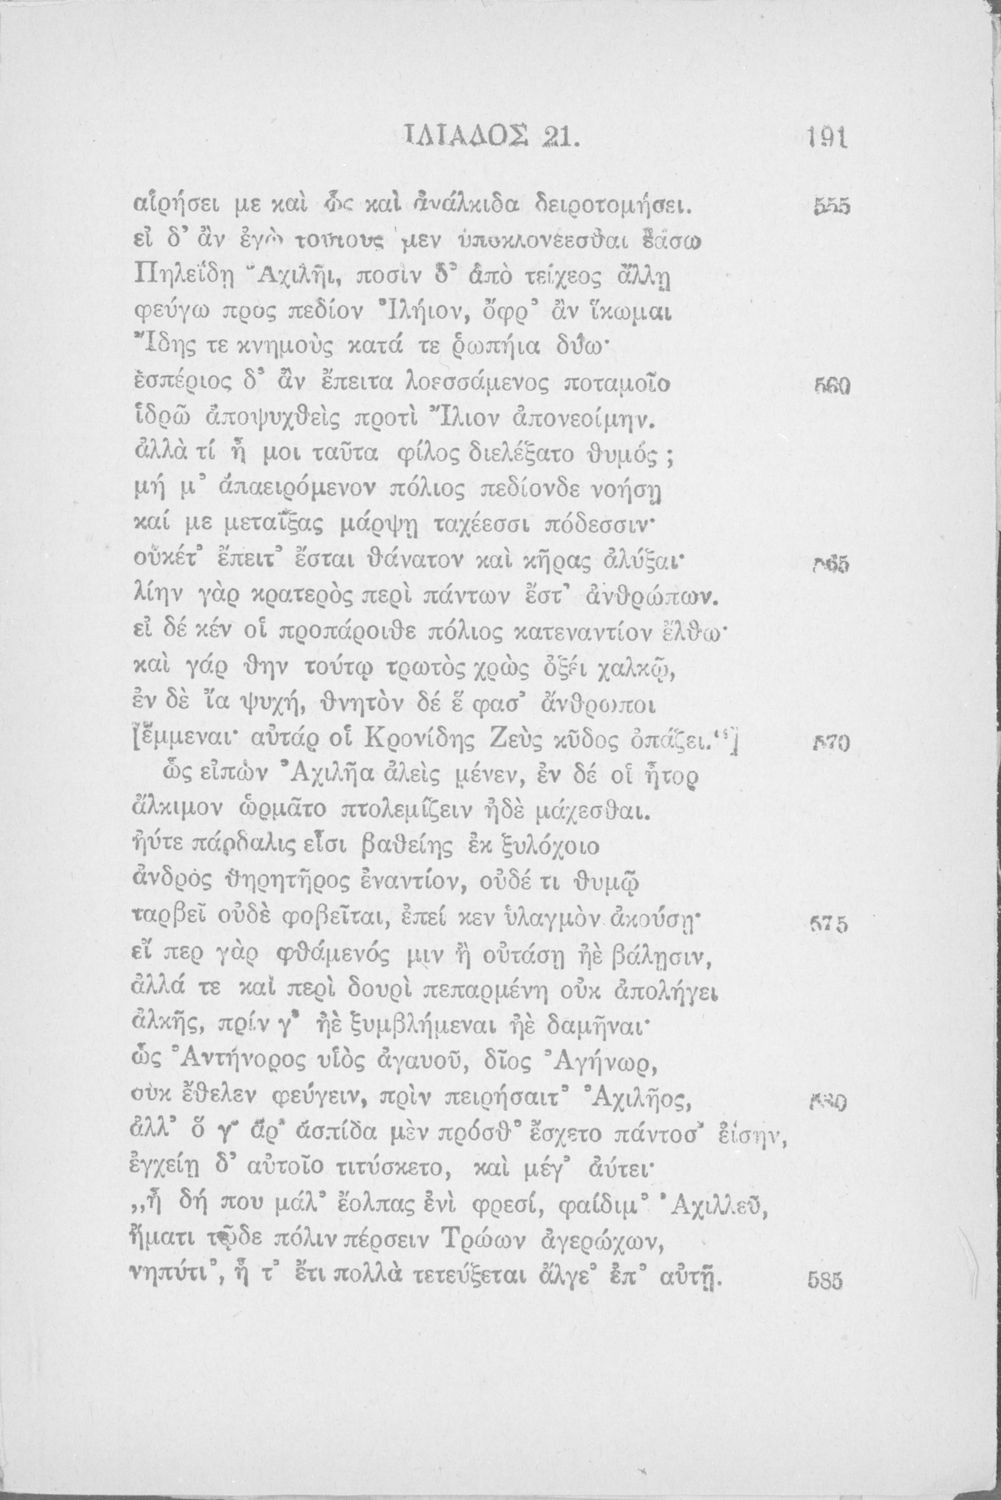 ΙΛΙΑΔΟΣ 21. 191
αἱρήσει με καὶ ὣς καὶ ἀνάλκιδα δειροτομήσει. 555
εἰ δ’ ἂν ἐγὼ τούτους μὲν ὑποκλονέεσθαι ἐάσω
Πηλεΐδῃ Ἀχιλῆι, ποσὶν δ’ ἀπὸ τείχεος ἄλλῃ
φεύγω πρὸς πεδίον Ἰλήιον, ὄφρ’ ἂν ἵκωμαι
Ἴδης τε κνημοὺς κατά τε ῥωπήια δύω·
ἑσπέριος δ’ ἂν ἔπειτα λοεσσάμενος ποταμοῖο 560
ἱδρῶ ἀποψυχθεὶς προτὶ Ἴλιον ἀπονεοίμην.
ἀλλὰ τί ἦ μοι ταῦτα φίλος διελέξατο θυμός ;
μή μ’ ἀπαειρόμενον πόλιος πεδίονδε νοήσῃ
καί με μεταΐξας μάρψῃ ταχέεσσι πόδεσσιν·
οὐκέτ’ ἔπειτ’ ἔσται θάνατον καὶ κῆρας ἀλύξαι· 565
λίην γὰρ κρατερὸς περὶ πάντων ἔστ’ ἀνθρώπων.
εἰ δέ κέν οἱ προπάροιθε πόλιος κατεναντίον ἔλθω·
καὶ γάρ θην τούτῳ τρωτὸς χρὼς ὀξέι χαλκῷ,
ἐν δὲ ἴα ψυχή, θνητὸν δέ ἕ φασ’ ἄνθρωποι
[ἔμμεναι· αὐτάρ οἱ Κρονίδης Ζεὺς κῦδος ὀπάζει.“]  570
ὣς εἰπὼν Ἀχιλῆα ἀλεὶς μένεν, ἐν δέ οἱ ἦτορ
ἄλκιμον ὡρμᾶτο πτολεμίζειν ἠδὲ μάχεσθαι.
ἠύτε πάρδαλις εἶσι βαθείης ἐκ ξυλόχοιο
ἀνδρὸς θηρητῆρος ἐναντίον, οὐδέ τι θυμῷ
ταρβεῖ οὐδὲ φοβεῖται, ἐπεί κεν ὑλαγμὸν ἀκούσῃ· 575
εἴ περ γὰρ φθάμενός μιν ἢ οὐτάσῃ ἠὲ βάλῃσιν,
ἀλλά τε καὶ περὶ δουρὶ πεπαρμένη οὐκ ἀπολήγει
ἀλκῆς, πρίν γ’ ἠὲ ξυμβλήμεναι ἠὲ δαμῆναι·
ὣς Ἀντήνορος υἱὸς ἀγαυοῦ, δῖος Ἀγήνωρ,
οὐκ ἔθελεν φεύγειν, πρὶν πειρήσαιτ’ Ἀχιλῆος, 580
ἀλλ’ ὅ γ’ ἄρ’ ἀσπίδα μὲν πρόσθ’ ἔσχετο πάντοσ’ ἐίσην,
ἐγχείῃ δ’ αὐτοῖο τιτύσκετο, καὶ μέγ’ ἀύτει·
„ἦ δή που μάλ’ ἔολπας ἐνὶ φρεσί, φαίδιμ’ Ἀχιλλεῦ,
ἤματι τῷδε πόλιν πέρσειν Τρώων ἀγερώχων,
νηπύτι’, ἦ τ’ ἔτι πολλὰ τετεύξεται ἄλγε’ ἐπ’ αὐτῇ. 585